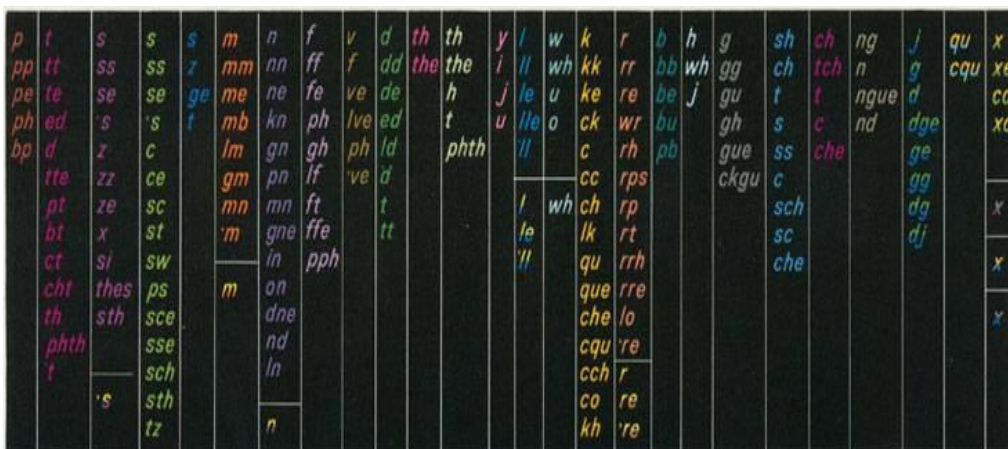 p
pp
pe
ph
bp
t
tt
te
ed
d
tte
pt
bt
ct
cht
th
phth
't
s
ss
se
's
z
zz
ze
x
si
thes
sth
's
s
ss
se
's
c
ce
sc
st
sw
ps
sce
sse
sch
sth
tz
s
z
ge
t
m
mm
me
mb
lm
gm
mn
'm
m
n
nn
ne
kn
gn
pn
mn
gne
in
on
dne
nd
ln
n
f
ff
fe
ph
gh
lf
ft
ffe
pph
v
f
ve
lve
ph
've
d
dd
de
ed
ld
'd
t
tt
th
the
th
the
h
t
phth
y
i
j
u
l
ll
le
lle
'll
l
le
'll
w
wh
u
o
wh
k
kk
ke
ck
c
cc
ch
lk
qu
que
che
cqu
cch
co
kh
r
rr
re
wr
rh
rps
rp
rt
rrh
rre
lo
're
r
re
're
b
bb
be
bu
pb
h
wh
j
g
gg
gu
gh
gue
ckgu
sh
ch
t
s
ss
c
sch
sc
che
ch
tch
t
c
che
ng
n
ngue
nd
j
g
d
dge
ge
gg
dg
dj
qu
cqu
x
xe
x
x
x